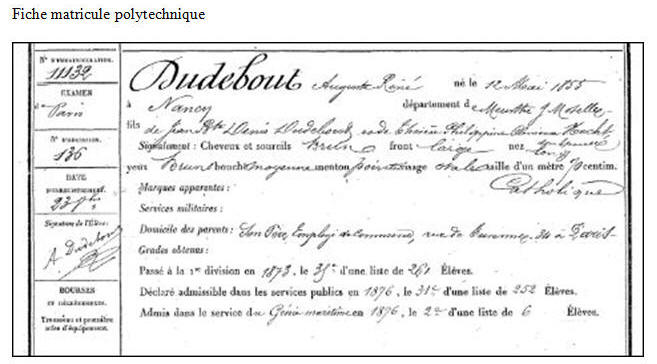 Fiche matricule polytechnique
N° D'IMMATRICULATION.
11132
EXAMEN
de Paris
N° D'ADMISSION.
136
DATE
D'ENREGISTREMENT.
Signature de l'Élève:
A Dudebout
BOURSES
ET DÉGRÈVEMENTS.
Trousseau et première
mise d'équipement.
DUDEBOUT Auguste René né le 12 Mai 1855
à Nancy département de Meurthe & Moselle
fils de Jean Bte Denis Dudebout, et de Thérèse Philippine
Signalement : Cheveux et sourcils brun front large nez
long
yeux bruns bouche moyenne menton pointu visage ovale taille d'un mètre 70 centim.
Marques apparentes : Catholique
Services militaires :
Domicile des parents : Son Père, Employé de Commerce, rue de 34 à Paris
Grades obtenus :
Passé à la 1re division en 1873, le 35e d'une liste de 261 Élèves.
Déclaré admissible dans les services publics en 1876, le 31e d'une liste de 252 Élèves.
Admis dans le service du Génie maritime en 1876, le 2e d'une liste de 6 Élèves.